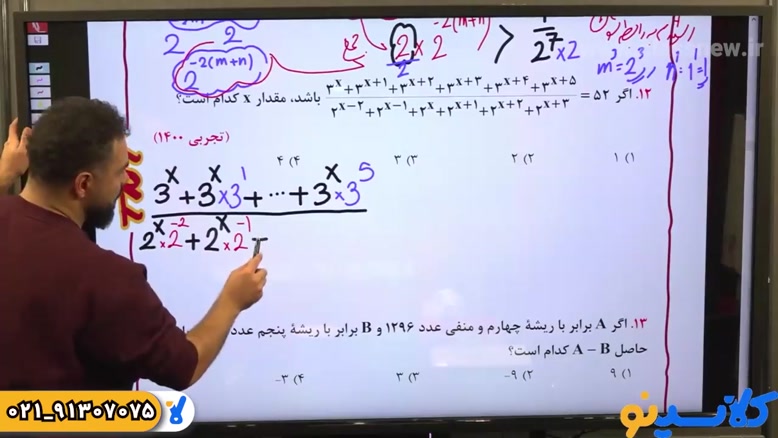 2   2
2^{-2(m+n)}
2 × 2^{-2(m+n)} > 1/2^7 × 2
2
m^3 = 2^3
۱۲. اگر (۳^x+۳^{x+۱}+۳^{x+۲}+۳^{x+۳}+۳^{x+۴}+۳^{x+۵})/(۲^{x-۲}+۲^{x-۱}+۲^x+۲^{x+۱}+۲^{x+۲}+۲^{x+۳}) = ۵۲ باشد، مقدار x کدام است؟
(تجربی ۱۴۰۰)
۱) ۱   ۲) ۲   ۳) ۳   ۴) ۴
3^x + 3^x × 3^1 + ... + 3^x × 3^5
2^x × 2^{-2} + 2^x × 2^{-1} +
۱۳. اگر A برابر با ریشهٔ چهارم و منفی عدد ۱۲۹۶ و B برابر با ریشهٔ پنجم عدد
حاصل A − B کدام است؟
۱) ۹   ۲) ۹-   ۳) ۳   ۴) ۳-
۰۲۱_۹۱۳۰۷۰۷۵
کلاسینو